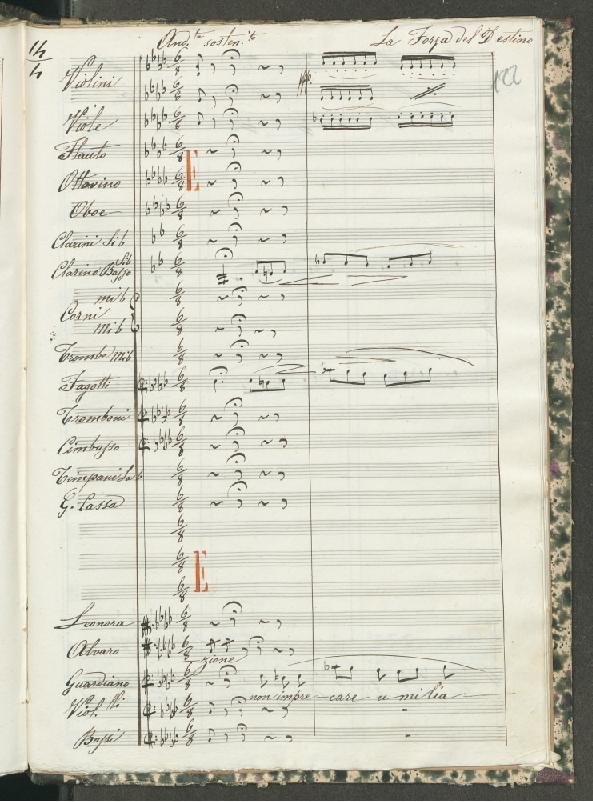 14/4 And.te sosten.to La Forza del Destino
122
Violini
Viole
Flauto
E
Ottavino
Oboe
Clarini Si b
Clarino Basso Sib
mi b
Corni
Mi b
Trombe Mib
Fagotti
Tromboni
Cimbasso
Timpani
G. Cassa
E
Leonora
Alvaro
zione
Guardiano
non impre-care u-milia-
Viol.lli
Bassi